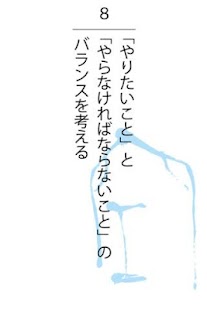 8
「やりたいこと」と
「やらなければならないこと」の
バランスを考える